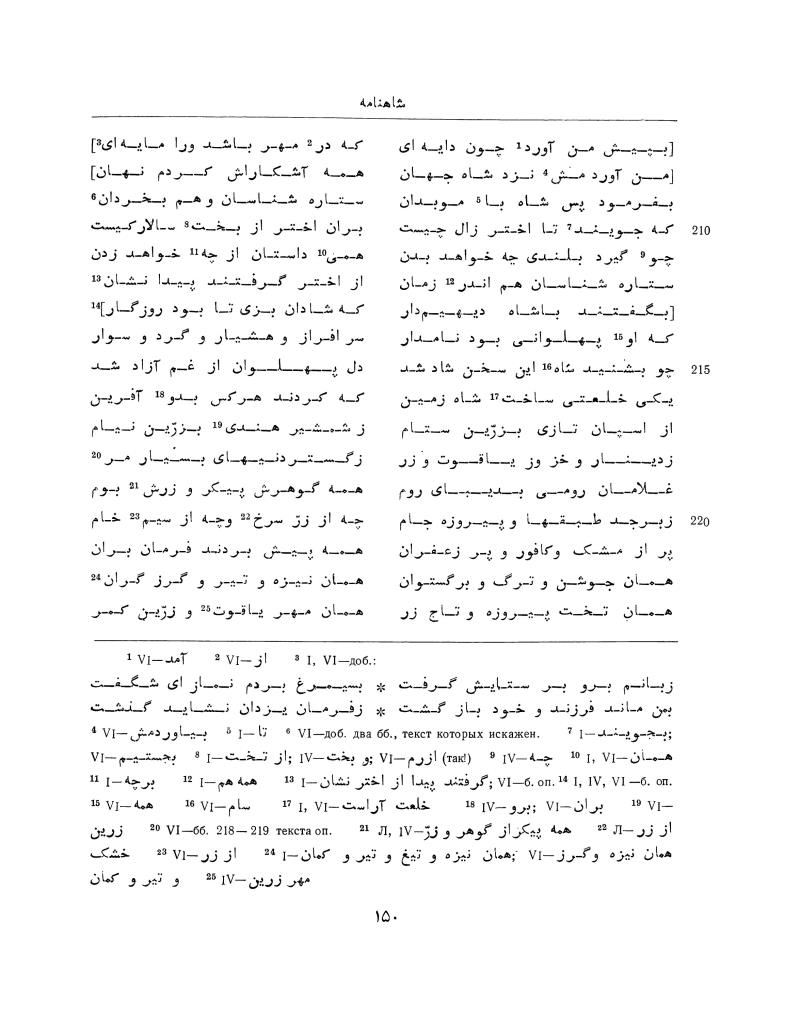 شاهنامه
[بپیش من آورد¹ چون دایه ای که در² مهر باشد ورا مایه ای³]
[من آورد مش⁴ نزد شاه جهان همه آشکاراش کردم نهان]
بفرمود پس شاه با⁵ موبدان ستاره شناسان و هم بخردان⁶
210 که جویند⁷ تا اختر زال چیست بران اختر از بخت⁸ سالار کیست
چو⁹ گیرد بلندی چه خواهد بدن همی¹⁰ داستان از چه¹¹ خواهد زدن
ستاره شناسان هم اندر¹² زمان از اختر گرفتند پیدا نشان¹³
[بگفتند باشاه دیهیمدار که شادان بزی تا بود روزگار]¹⁴
که او¹⁵ پهلوانی بود نامدار سر افراز و هشیار و گرد و سوار
215 چو بشنید شاه¹⁶ این سخن شاد شد دل پهلوان از غم آزاد شد
یکی خلعتی ساخت¹⁷ شاه زمین که کردند هرکس بدو¹⁸ آفرین
از اسپان تازی بزرّین ستام ز شمشیر هندی¹⁹ بزرّین نیام
زدینار و خز وز یاقوت و زر زگستردنیهای بسیار مر²⁰
غلامان رومی بدیبای روم همه گوهرش پیکر و زرش²¹ بوم
220 زبرجد طبقها و پیروزه جام چه از زرّ سرخ²² وچه از سیم²³ خام
پر از مشک وکافور و پر زعفران همه پیش بردند فرمان بران
همان جوشن و ترگ و برگستوان همان نیزه و تیر و گرز گران²⁴
همان تخت پیروزه و تاج زر همان مهر یاقوت²⁵ و زرّین کمر
¹ VI—آمد ² VI—از ³ I, VI—доб.:
زبانم برو بر ستایش گرفت * بسیمرغ بردم نماز ای شگفت
بمن ماند فرزند و خود باز گشت * زفرمان یزدان نشاید گذشت
⁴ VI—بیاوردمش ⁵ I—تا ⁶ VI—доб. два бб., текст которых искажен. ⁷ I—بجویند;
VI—بجستیم ⁸ I—از تخت; IV—و بخت; VI—ازرم (так!) ⁹ IV—چه ¹⁰ I, VI—همان
¹¹ I—برچه ¹² I—همه هم ¹³ I—گرفتند پیدا از اختر نشان; VI—б. оп. ¹⁴ I, IV, VI—б. оп.
¹⁵ VI—همه ¹⁶ VI—سام ¹⁷ I, VI—خلعت آراست ¹⁸ IV—برو; VI—بران ¹⁹ VI—
زرین ²⁰ VI—бб. 218—219 текста оп. ²¹ Л, IV—همه پیکراز گوهر و زرّ ²² Л—از زر
خشک ²³ VI—از زر ²⁴ I—همان نیزه و تیغ و تیر و کمان; VI—همان نیزه وگرز
و تیر و کمان ²⁵ IV—مهر زرین
۱۵۰